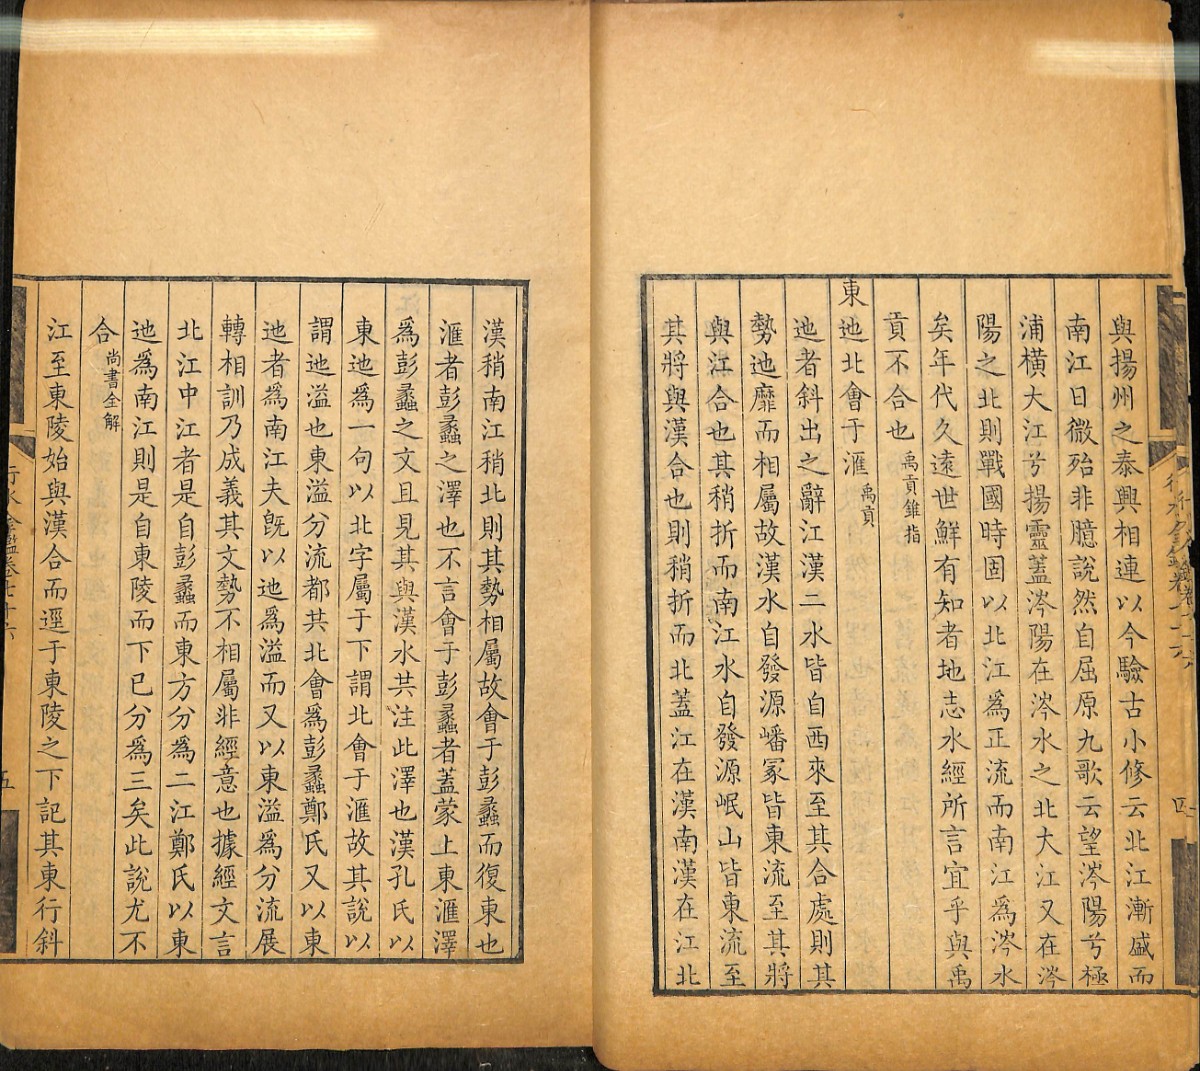 與揚州之泰興相連以今驗古小修云北江漸盛而
南江日微殆非臆說然自屈原九歌云望涔陽兮極
浦橫大江兮揚靈蓋涔陽在涔水之北大江又在涔
陽之北則戰國時固以北江爲正流而南江爲涔水
矣年代久遠世鮮有知者地志水經所言宜乎與禹
貢不合也禹貢錐指
東迆北會于滙禹貢
迆者斜出之辭江漢二水皆自西來至其合處則其
勢迆靡而相屬故漢水自發源嶓冢皆東流至其將
與江合也其稍折而南江水自發源岷山皆東流至
其將與漢合也則稍折而北蓋江在漢南漢在江北
四
漢稍南江稍北則其勢相屬故會于彭蠡而復東也
滙者彭蠡之澤也不言會于彭蠡者蓋蒙上東滙澤
爲彭蠡之文且見其與漢水共注此澤也漢孔氏以
東迆爲一句以北字屬于下謂北會于滙故其說以
謂迆溢也東溢分流都共北會爲彭蠡鄭氏又以東
迆者爲南江夫旣以迆爲溢而又以東溢爲分流展
轉相訓乃成義其文勢不相屬非經意也據經文言
北江中江者是自彭蠡而東方分爲二江鄭氏以東
迆爲南江則是自東陵而下已分爲三矣此說尤不
合尚書全解
江至東陵始與漢合而逕于東陵之下記其東行斜
行水金鑑卷七十六
五